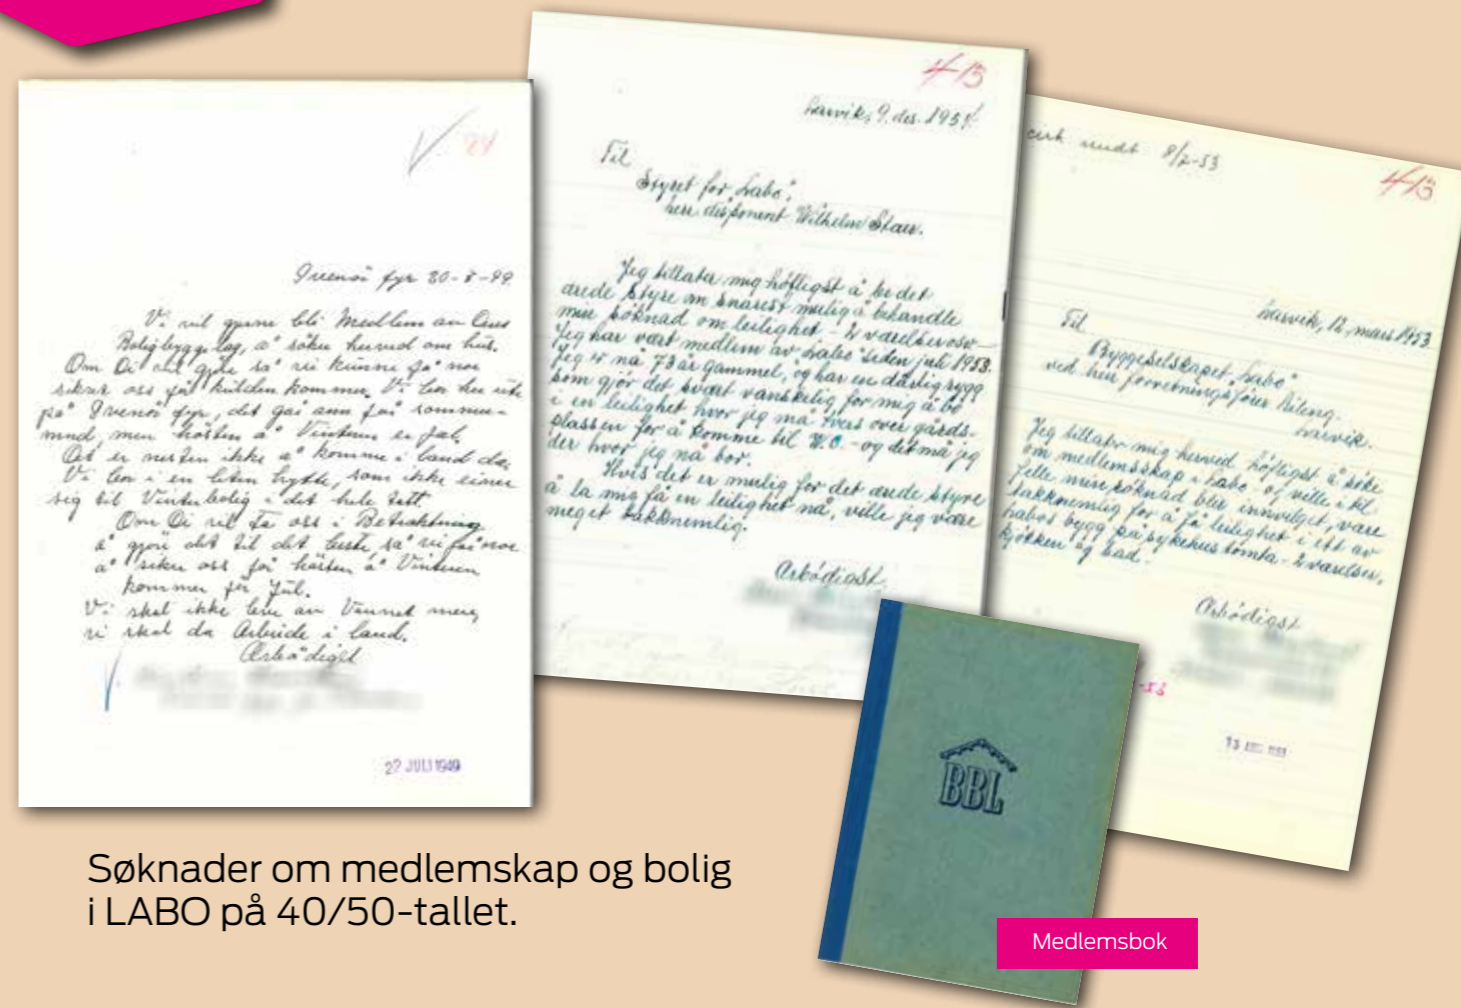 Svenör fyr 20-8-49
Vi vil gjerne bli Medlem av Eders
Boligbyggelag, å söker herved om hus.
Om Di vil gjöre så vi kunne få noe
sikker oss för kulden kommer. Vi bor her ute
på Svenör fyr, det går ann for sommer-
mnd, men hösten å Vinteren er fæl.
Det er nesten ikke å komme i land da.
Vi bor i en liten hytte, som ikke einer
sig til Vinterbolig i det hele tatt.
Om Di vil ta oss i Betraktning
å gjöre det til det beste, så vi får noe
å sikre oss for hösten å Vinteren
kommer för Jul.
Vi skal ikke leve av Vannet mere,
vi skal da Arbeide i land.
Ærbödigst
27 JULI 1949
4-13
Larvik, 9. des. 195
Til
Styret for "Labo",
herr disponent Wilhelm
Jeg tillater mig höfligst å be det
ærede styre om snarest mulig å behandle
min söknad om leilighet - 2 værelser
Jeg har vært medlem av "Labo" siden juli 1953.
Jeg er nå 73 år gammel, og har en dårlig rygg
som gjör det svært vanskelig for mig å bo
i en leilighet hvor jeg må tvers over gårds-
plassen for å komme til W.C. - og det må jeg
der hvor jeg nå bor.
Hvis det er mulig for det ærede styre
å la mig få en leilighet nå, ville jeg være
meget takknemlig.
Ærbödigst
sendt 8/2-53
4-13
Larvik, 12. mars 1953
Til
Byggeselskapet "Labo",
ved herr forretningsförer
Larvik.
Jeg tillater mig herved höfligst å söke
om medlemsskap i "Labo" og ville i til-
felle min söknad blir innvilget, være
takknemlig for å få leilighet i ett av
Labos bygg på sykehustomta - 2 værelser,
kjökken og bad.
Ærbödigst
-53
BBL
Søknader om medlemskap og bolig
i LABO på 40/50-tallet.
Medlemsbok